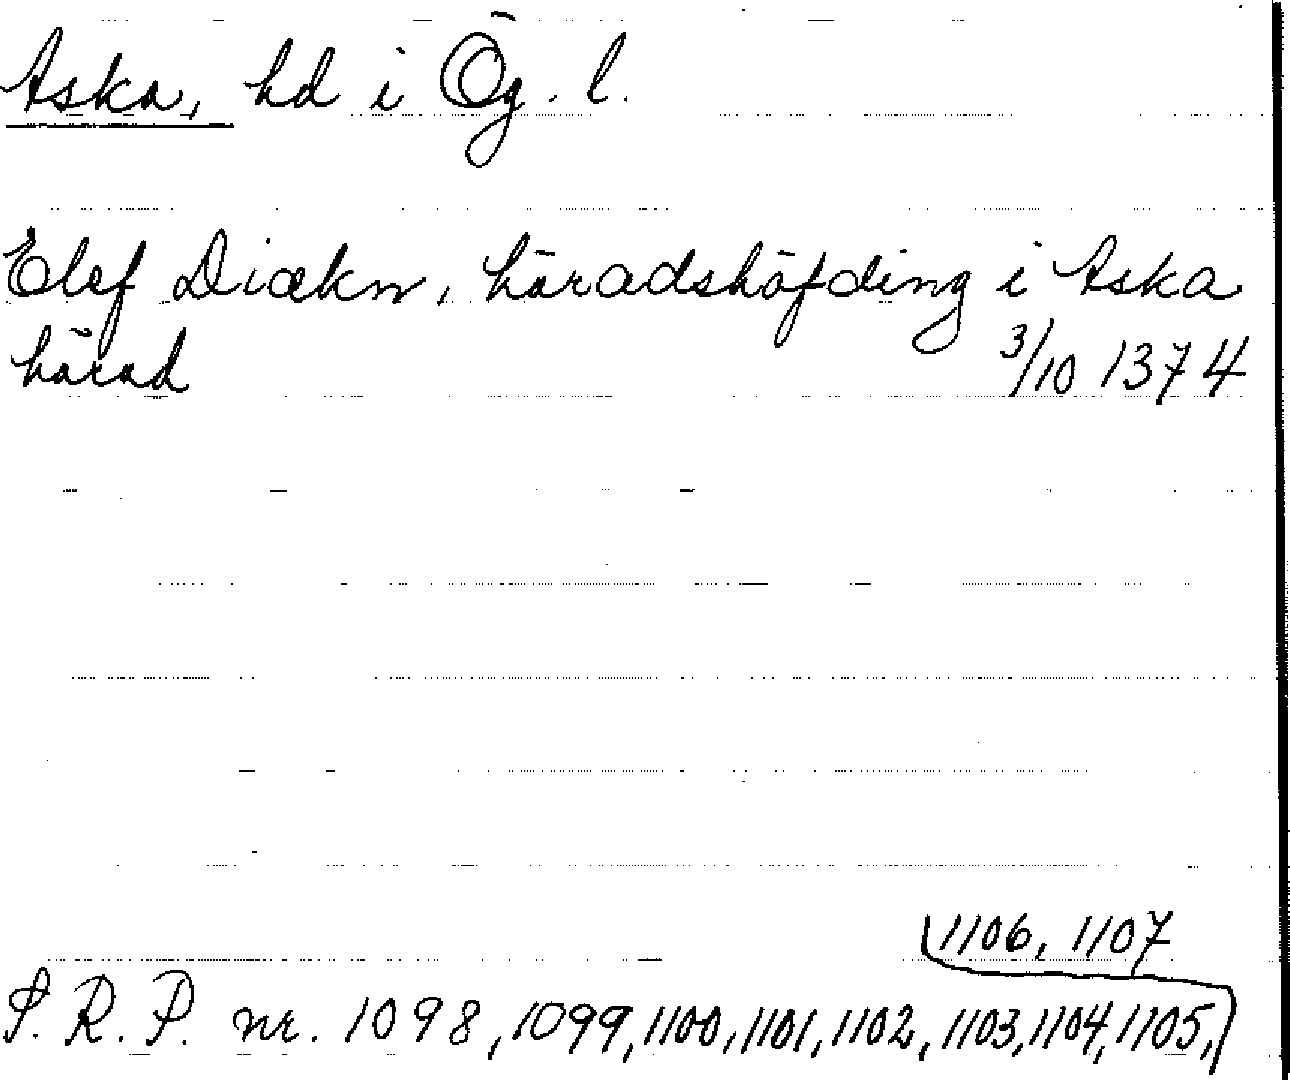 Aska, hd i Ög. l.
Elef Diækn, häradshöfding i Aska
härad 3/10 1374
1106, 1107
S. R. P. nr. 1098, 1099, 1100, 1101, 1102, 1103, 1104, 1105,